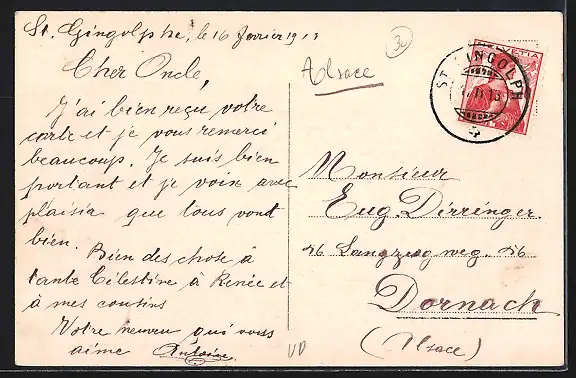 St. Gingolphe, le 16 fevrier 1913
Cher Oncle,
J'ai bien reçu votre
carte et je vous remerci
beaucoup. Je suis bien
portant et je vois avec
plaisia que tous vont
bien.
Bien des chose à
tante Célestine à Renée et
à mes coutins
Votre neuveu qui vous
aime Antoine.
30
Alsace
HELVETIA
ST. GINGOLPH
Monsieur
Eug. Dirringer.
56 Langzug weg. 56
Dornach
(Alsace)